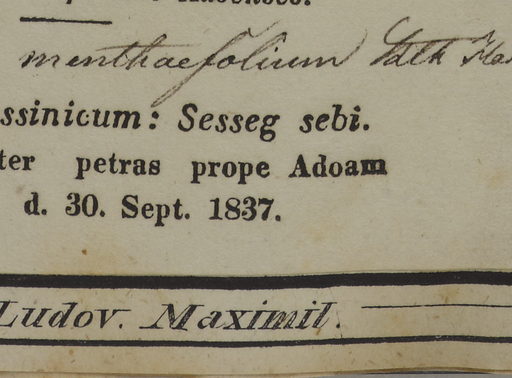 menthaefolium
ssinicum: Sesseg sebi.
ter petras prope Adoam
d. 30. Sept. 1837.
Ludov. Maximil.